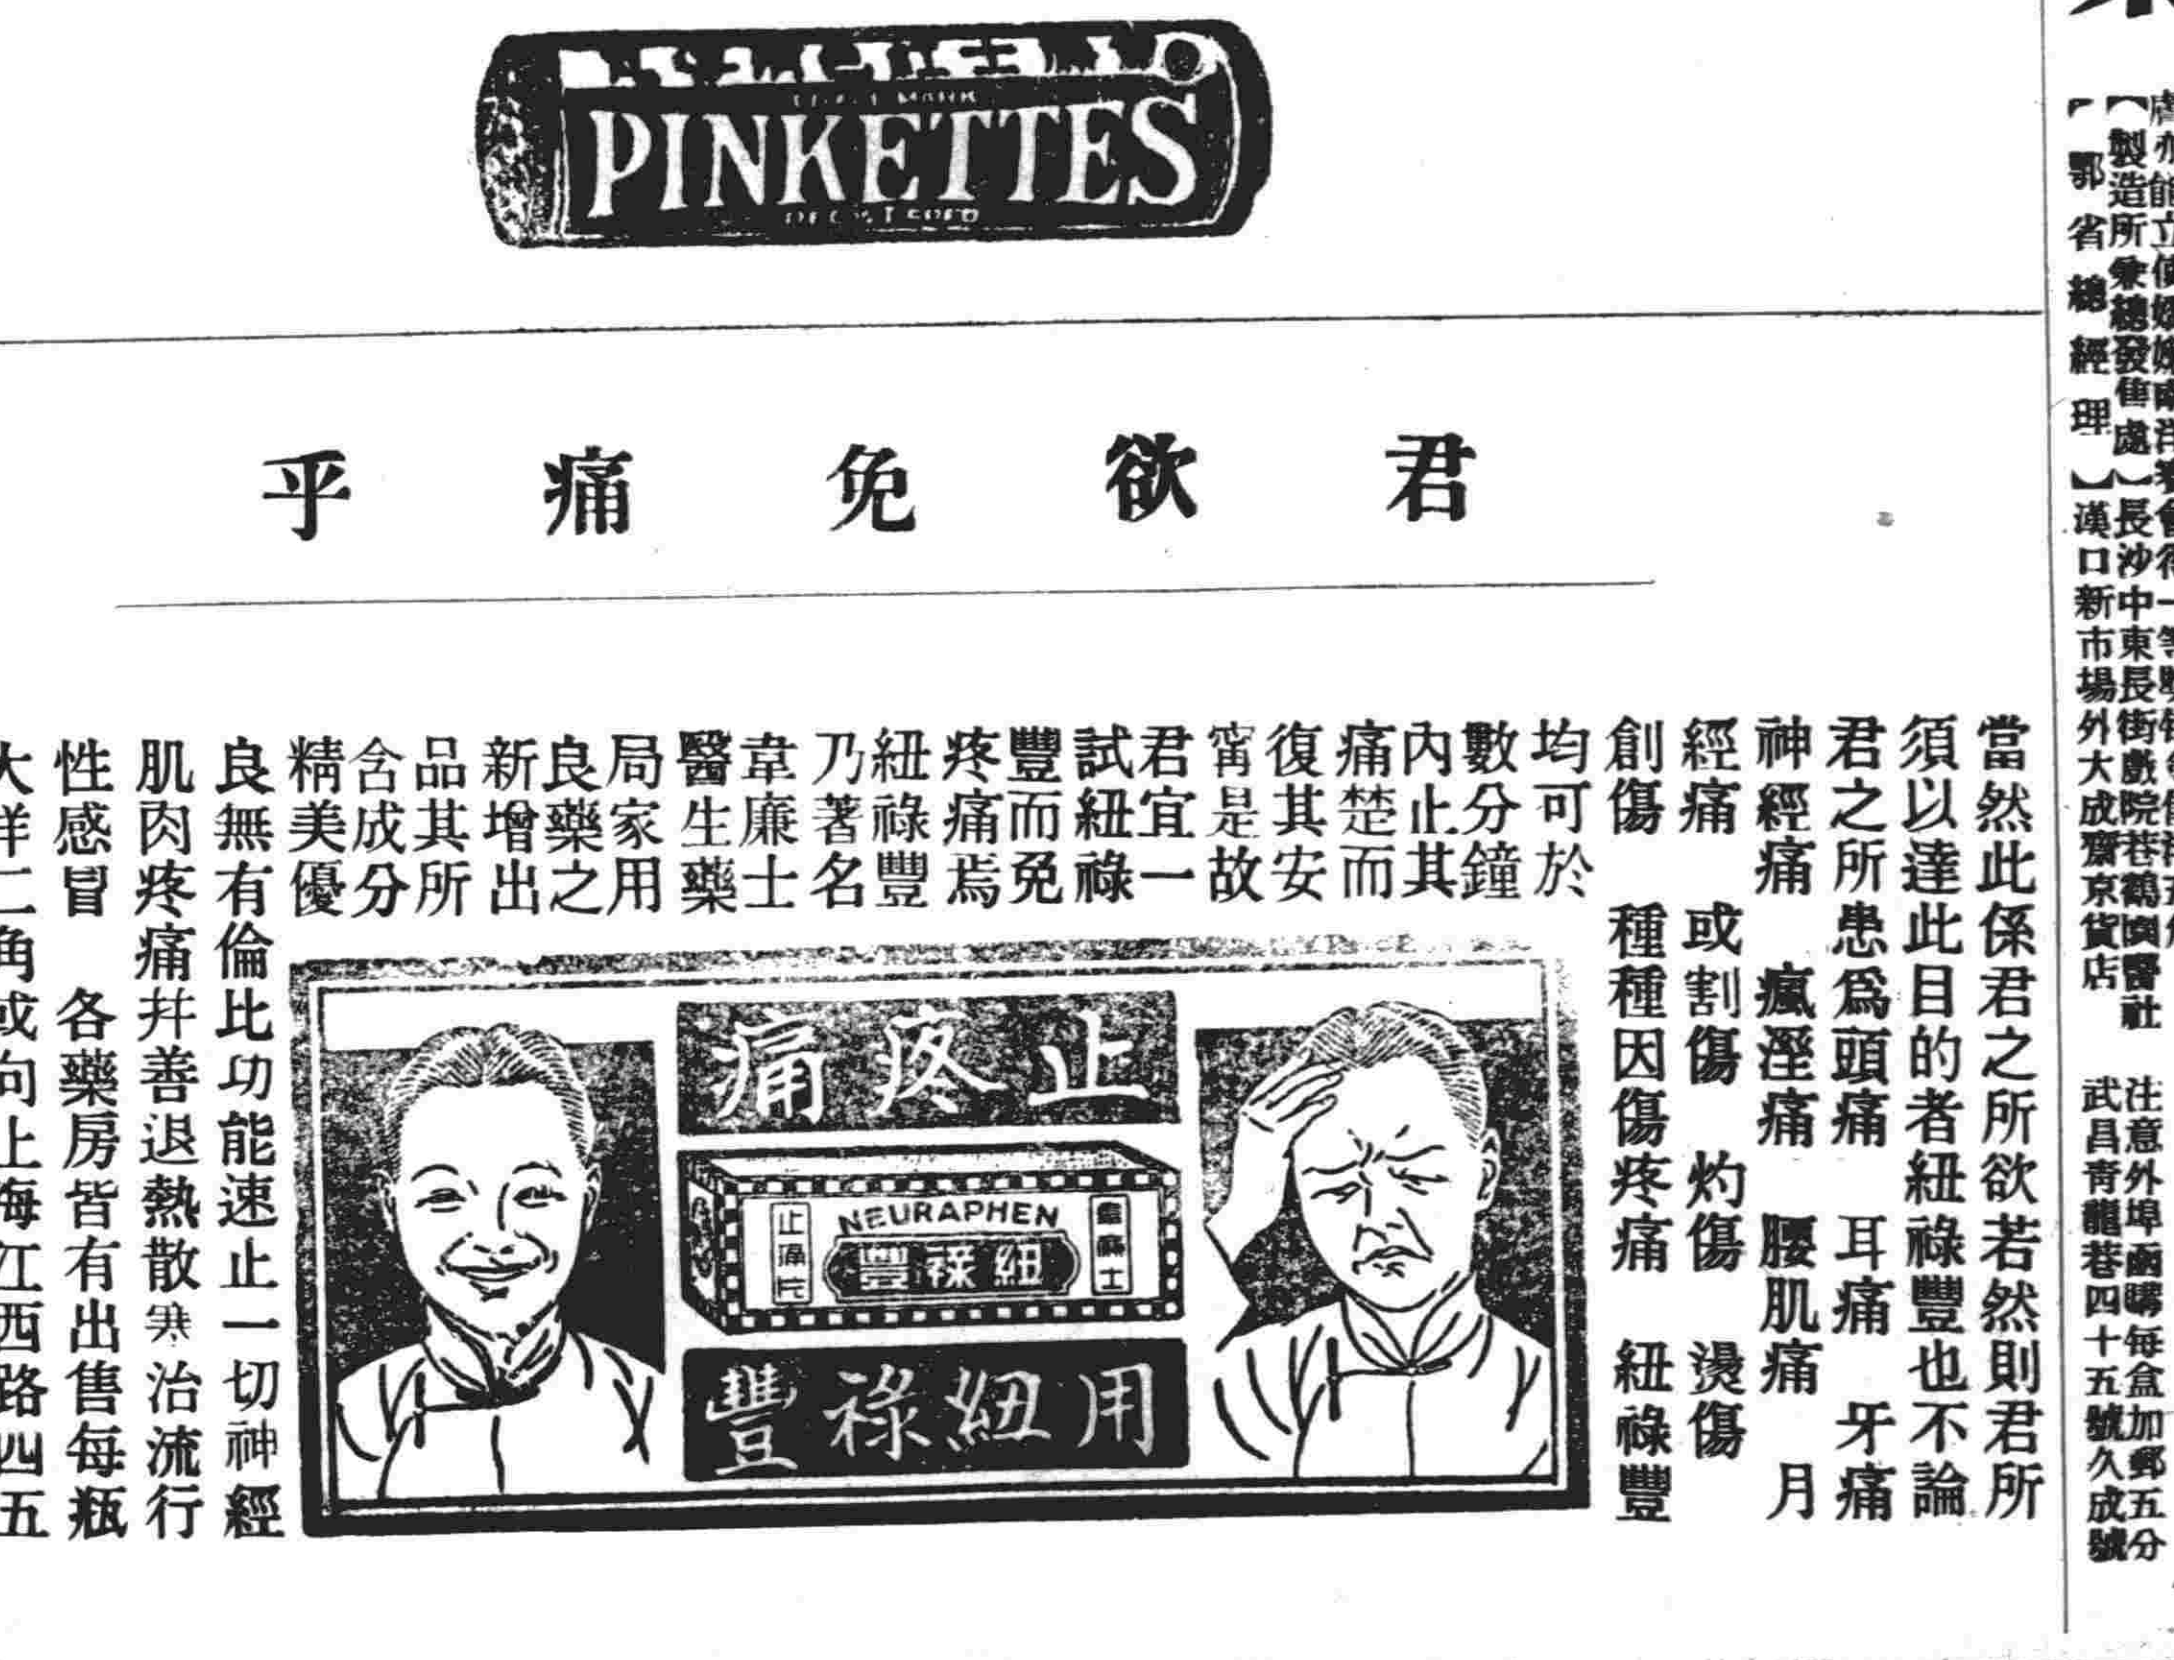 PINKETTES
君欲免痛乎
當然此係君之所欲若然則君所
須以達此目的者紐祿豐也不論
君之所患爲頭痛 耳痛 牙痛
神經痛 瘋溼痛 腰肌痛 月
經痛 或割傷 灼傷 燙傷
創傷 種種因傷疼痛 紐祿豐
均可於
數分鐘
內止其
痛楚而
復其安
甯是故
君宜一
試紐祿
豐而免
疼痛焉
紐祿豐
乃著名
韋廉士
醫生藥
局家用
良藥之
新增出
品其所
含成分
精美優
良無有倫比功能速止一切神經
肌肉疼痛幷善退熱散寒治流行
性感冒 各藥房皆有出售每瓶
大洋二角或向上海江西路四五
止疼痛
NEURAPHEN
韋廉士
紐祿豐
止痛片
用紐祿豐
【製造所兼總發售處】長沙中東長街戲院巷鶴園醫社 注意外埠函購每盒加郵五分
【鄂省總經理】漢口新市場外大成齋京貨店 武昌青龍巷四十五號久成號